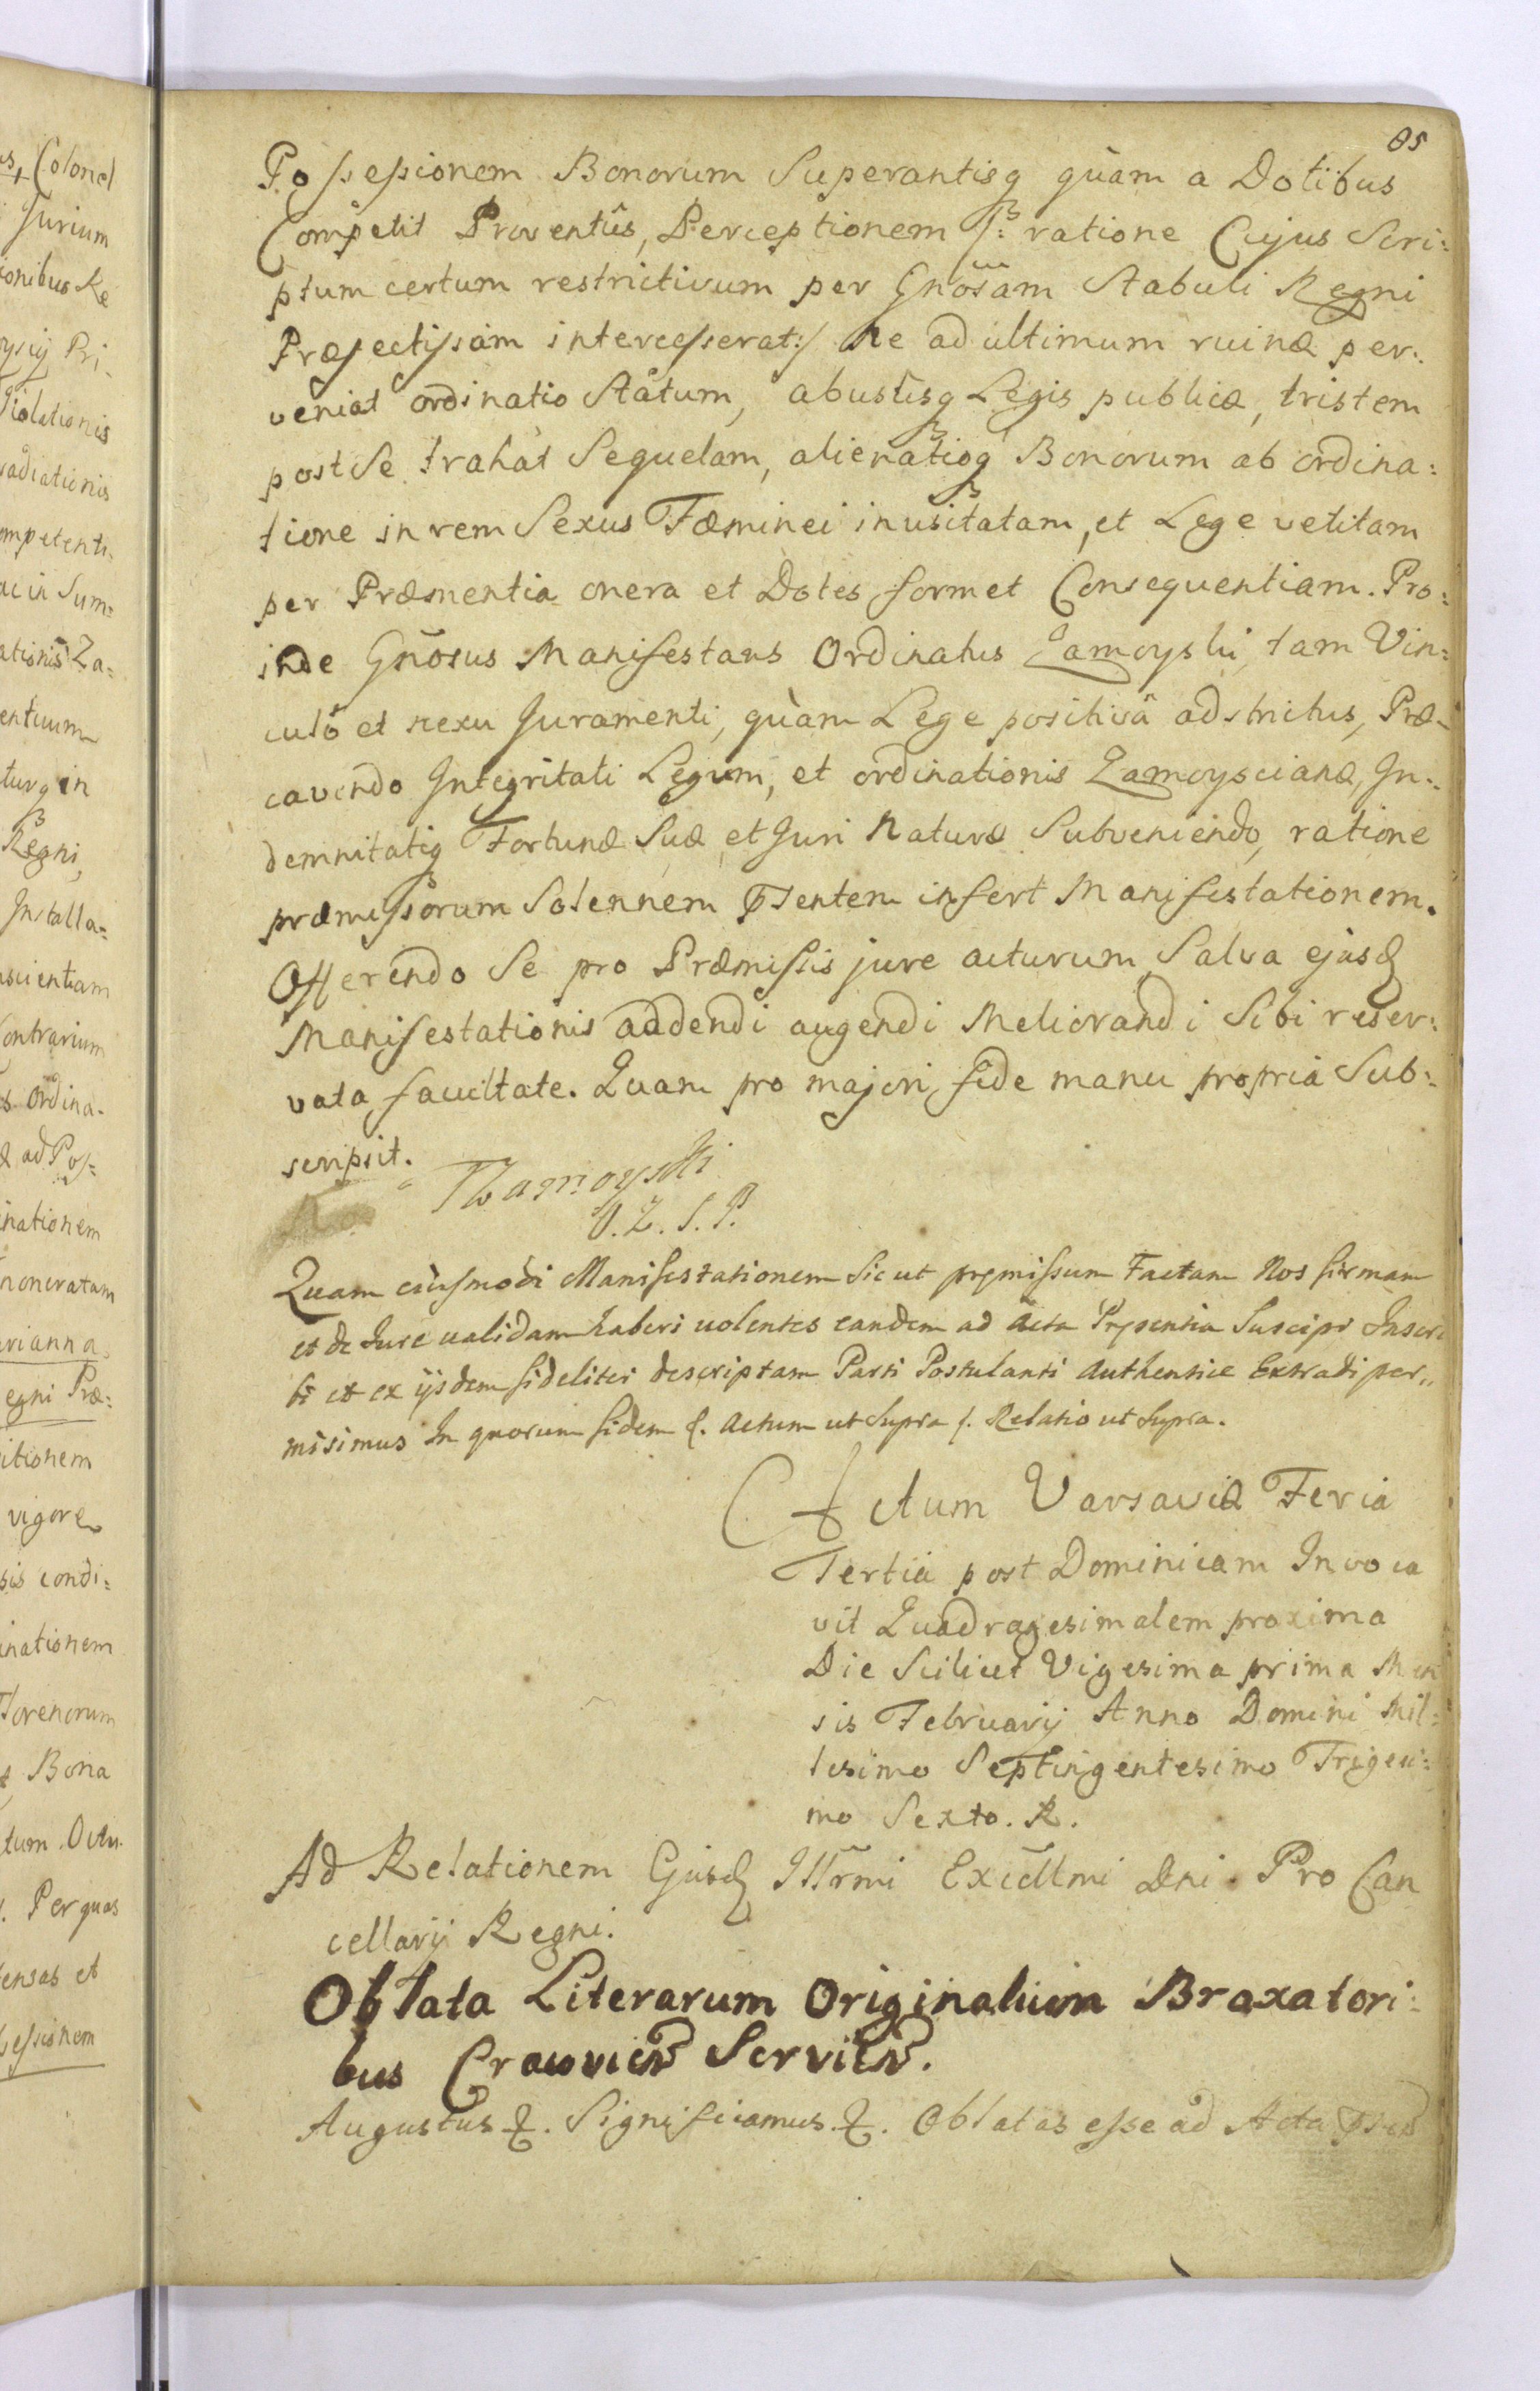 85
Possessionem Bonorum Superantisq quàm a Dotibus
Competit Proventûs, Perceptionem /: ratione Cujus Scri:
ptum certum restrictivum per Gnõsam Stabuli Regni
Præfectissam intercesserat:/ ne ad ultimum ruinæ per:
veniat ordinatio Statum, abusûsq Legis publicæ, tristem
post Se trahat Sequelam, alienatioq Bonorum ab ordina:
tione in rem Sexus Fæminei inusitatam, et Lege vetitam
per Præsmentia onera et Dotes formet Consequentiam. Pro:
inde Gnõsus Manifestans Ordinatus Zamoyski, tam Vin:
culô et nexu Juramenti, quàm Lege positivâ adstrictus, Præ-
cavendo Integritati Legum, et ordinationis Zamoyscianæ, In:
demnitatiq Fortunæ Suæ et Juri Naturæ Subveniendo, ratione
præmissorum Solennem Psentem infert Manifestationem.
Offerendo Se pro Præmissis jure acturum Salva ejusd
Manifestationis addendi augendi Meliorandi Sibi reser:
vata facultate. Quam pro majori fide manu propria Sub:
scripsit.
TZamoyski
O. Z. S. P.
Quam eiusmodi Manifestationem Sic ut pręmissum Factam Nos firmam
et de Iure validam haberi volentes eandem ad Acta Pręsentia Suscipi Inscri
bi et ex ijsdem fideliter descriptam Parti Postulanti Authentice Extradi per„
misimus In quorum fidem &. Actum ut Supra &. Relatio ut Supra.
Actum Varsaviæ Feria
Tertia post Dominicam Invoca
vit Quadragesimalem proxima
Die Scilicet Vigesima prima Men
sis Februarij Anno Domini Mil:
lesimo Septingentesimo Trigesi:
mo Sexto. R.
Ad Relationem Ejusd Illrmi Excelltmi Dni Pro Can
cellarij Regni.
Oblata Literarum Originalium Braxatori:
bus Cracovien Servien.
Augustus &. Significamus &. Oblatas esse ad Acta Psen